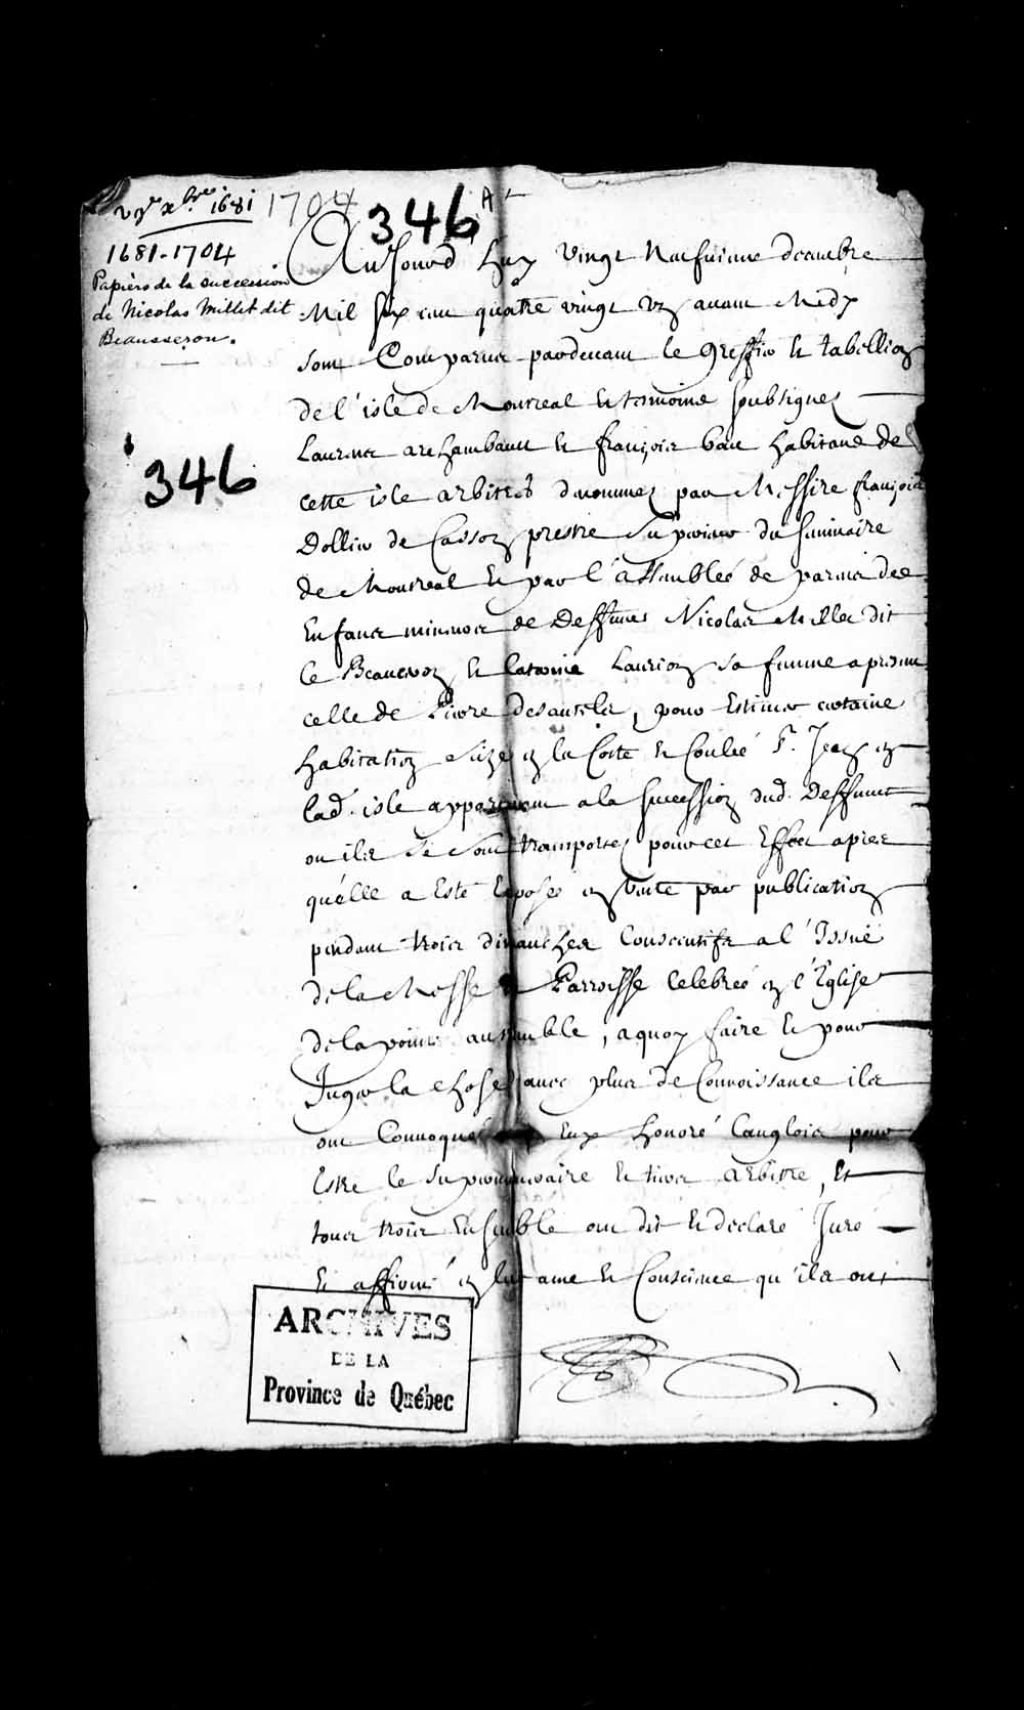 xbre 1681 1704
346
1681-1704
Papiers de la succession
de Nicolas Millet dit
Beausseron.
346
Aujourd huy vingt neufuieme decembre
Mil six cent quatre vingt un auant Midy
sont Comparus pardeuant le greffier et tabellion
de l'isle de Montreal et tesmoins soubsignez
Laurens archambault et françois bau habitans de
cette isle arbitres denommez par Messire françois
Dollier de Casson prestre superieur du seminaire
de Montreal et par l'assemblée de parens des
Enfans mineurs de deffunct Nicolas Millet dit
le Beauceron et Caterine Laurion sa femme a present
celle de Pierre desautels, pour Estimer certaine
habitation size en la Coste et Coulée St. Jean en
lad. isle appartenant a la succession dud. Deffunct
ou ils se sont transportez pour cet Effect apres
qu'elle a Esté Exposée en vente par publication
pendant trois dimanches Consecutifs a l'Issuë
de la Messe de Parroisse Celebrée en l'Eglise
de la pointe aux tremble, a quoy faire et pour
Juger la chose auec plus de Connoissance ils
ont Conuoqué Eux honoré Langlois pour
Estre le et tiers arbitre, Et
tous trois Ensemble ont dit et declaré Juré
Et affirmé en leur ame et Conscience qu'ils ont
ARCHIVES
DE LA
Province de Québec